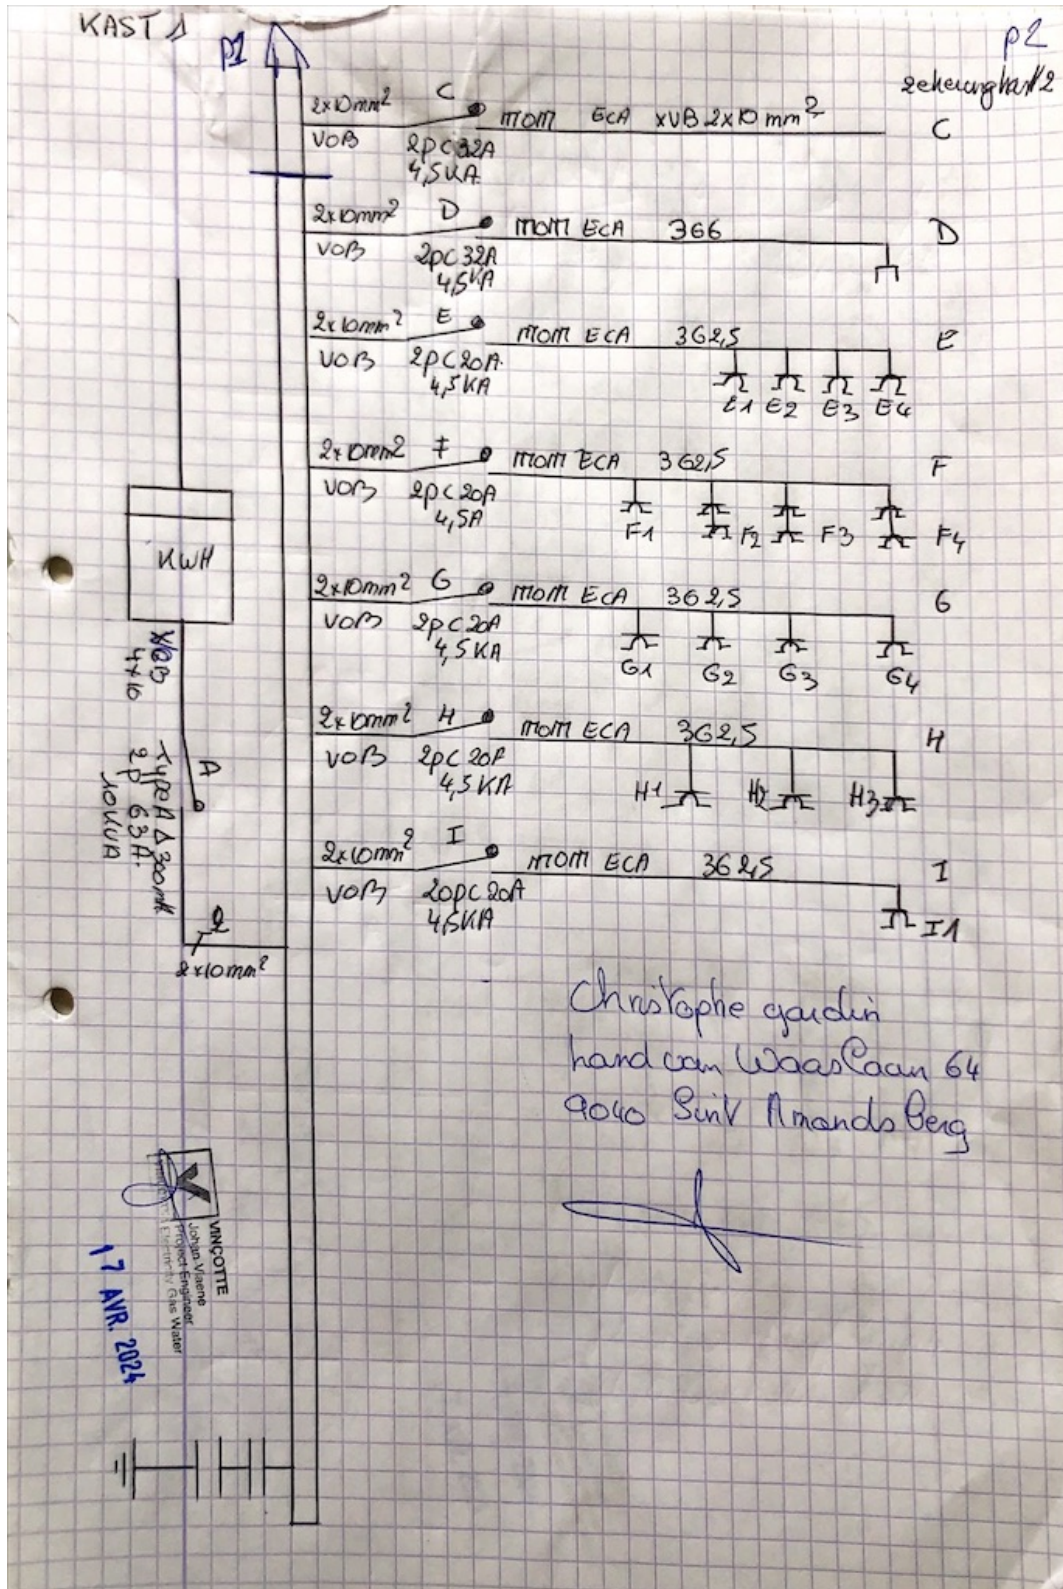 KAST 1
P1
p2
2x10mm² C MOM ECA XVB 2x10 mm² C
VOB 2p C 32A
4,5KA
2x10mm² D MOM ECA 3G6 D
VOB 2pC 32A
4,5KA
2x10mm² E MOM ECA 3G2,5 E
VOB 2pC 20A
4,5KA
E1 E2 E3 E4
2x10mm² F MOM ECA 3G2,5 F
VOB 2pC 20A
4,5A
F1 F2 F3 F4
KWH
2x10mm² G MOM ECA 3G2,5 G
VOB 2pC 20A
4,5KA
G1 G2 G3 G4
4x10
2x10mm² H MOM ECA 3G2,5 H
VOB 2pC 20A
4,5KA
H1 H2 H3
A
Type A Δ 300mA
2p 63A
10KVA
2x10mm² I MOM ECA 3G2,5 I
VOB 20pC 20A
4,5KA
I1
2
2x10mm²
Christophe gardin
hand van Waaslaan 64
9040 Sint Amandsberg
VINÇOTTE
Johan Vlaene
Project Engineer
Electricity Gas Water
17 AVR. 2024